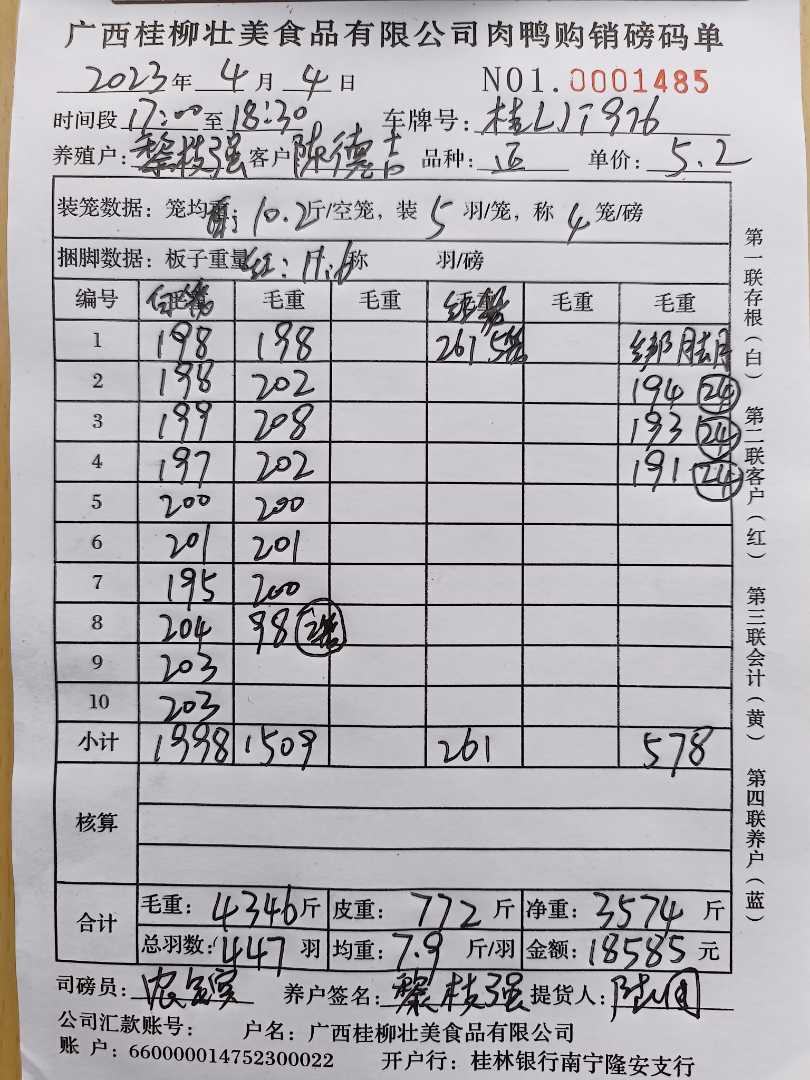 广西桂柳壮美食品有限公司肉鸭购销磅码单
2023年 4月 4日 NO1.0001485
时间段17:00至18:30 车牌号:桂
养殖户:黎枝强 客户陈德吉 品种: 正 单价: 5.2
装笼数据: 笼均重: 10.2斤/空笼, 装 5 羽/笼, 称 4 笼/磅
捆脚数据: 板子重量红: 17.6称 羽/磅
编号 毛重 毛重 毛重
1 198 198 261 5笼 绑
2 198 202 194 24
3 199 208 193 24
4 197 202 191 24
5 200 200
6 201 201
7 195 200
8 204 98 2笼
9 203
10 203
小计 1998 1509 261 578
核算
合计 毛重: 4346斤 皮重: 772斤 净重: 3574斤
总羽数: 447羽 均重: 7.9斤/羽 金额: 18585元
司磅员: 养户签名: 黎枝强 提货人:
公司汇款账号: 户名: 广西桂柳壮美食品有限公司
账 户: 660000014752300022 开户行: 桂林银行南宁隆安支行
第一联存根(白) 第二联客户(红) 第三联会计(黄) 第四联养户(蓝)